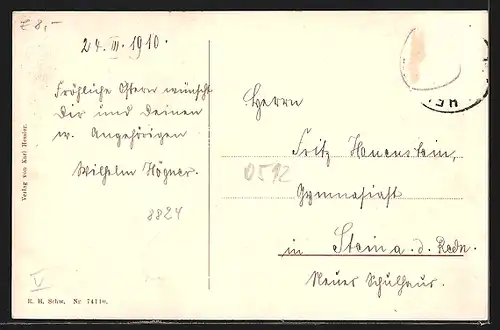 £ 8,-
24. III. 1910.
Fröhliche Ostern wünscht
Dir und Deinen
w. Angehörigen
Wilhelm Högner.
8824
Herrn
Fritz Hauenstein,
0592
Gymnasiast
in Stein a. d. Redn.
Neues Schulhaus.
Verlag von Karl Hessler.
V
Nr. 74110.